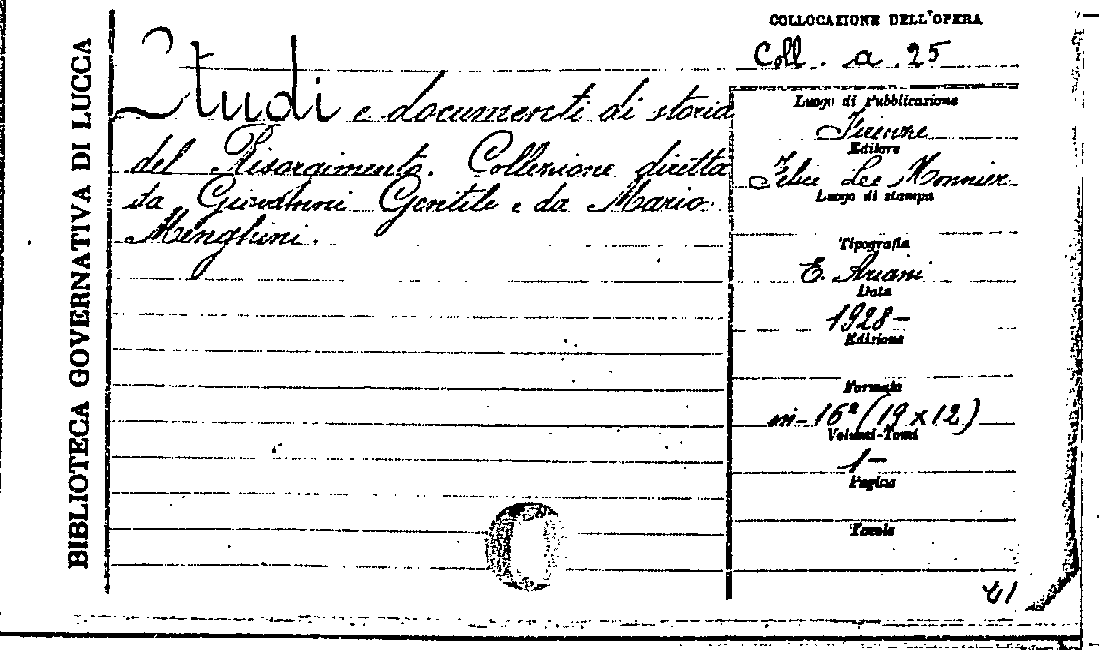 BIBLIOTECA GOVERNATIVA DI LUCCA
Studi e documenti di storia
del Risorgimento. Collezione diretta
da Giovanni Gentile e da Mario
Menghini.
COLLOCAZIONE DELL'OPERA
Coll. a. 25
Luogo di Pubblicazione
Firenze
Editore
Felice Le Monnier
Luogo di stampa
Tipografia
E. Ariani
Data
1928-
Edizione
Formato
in-16º (19 x 12)
Volumi-Tomi
1-
Pagine
Tavole